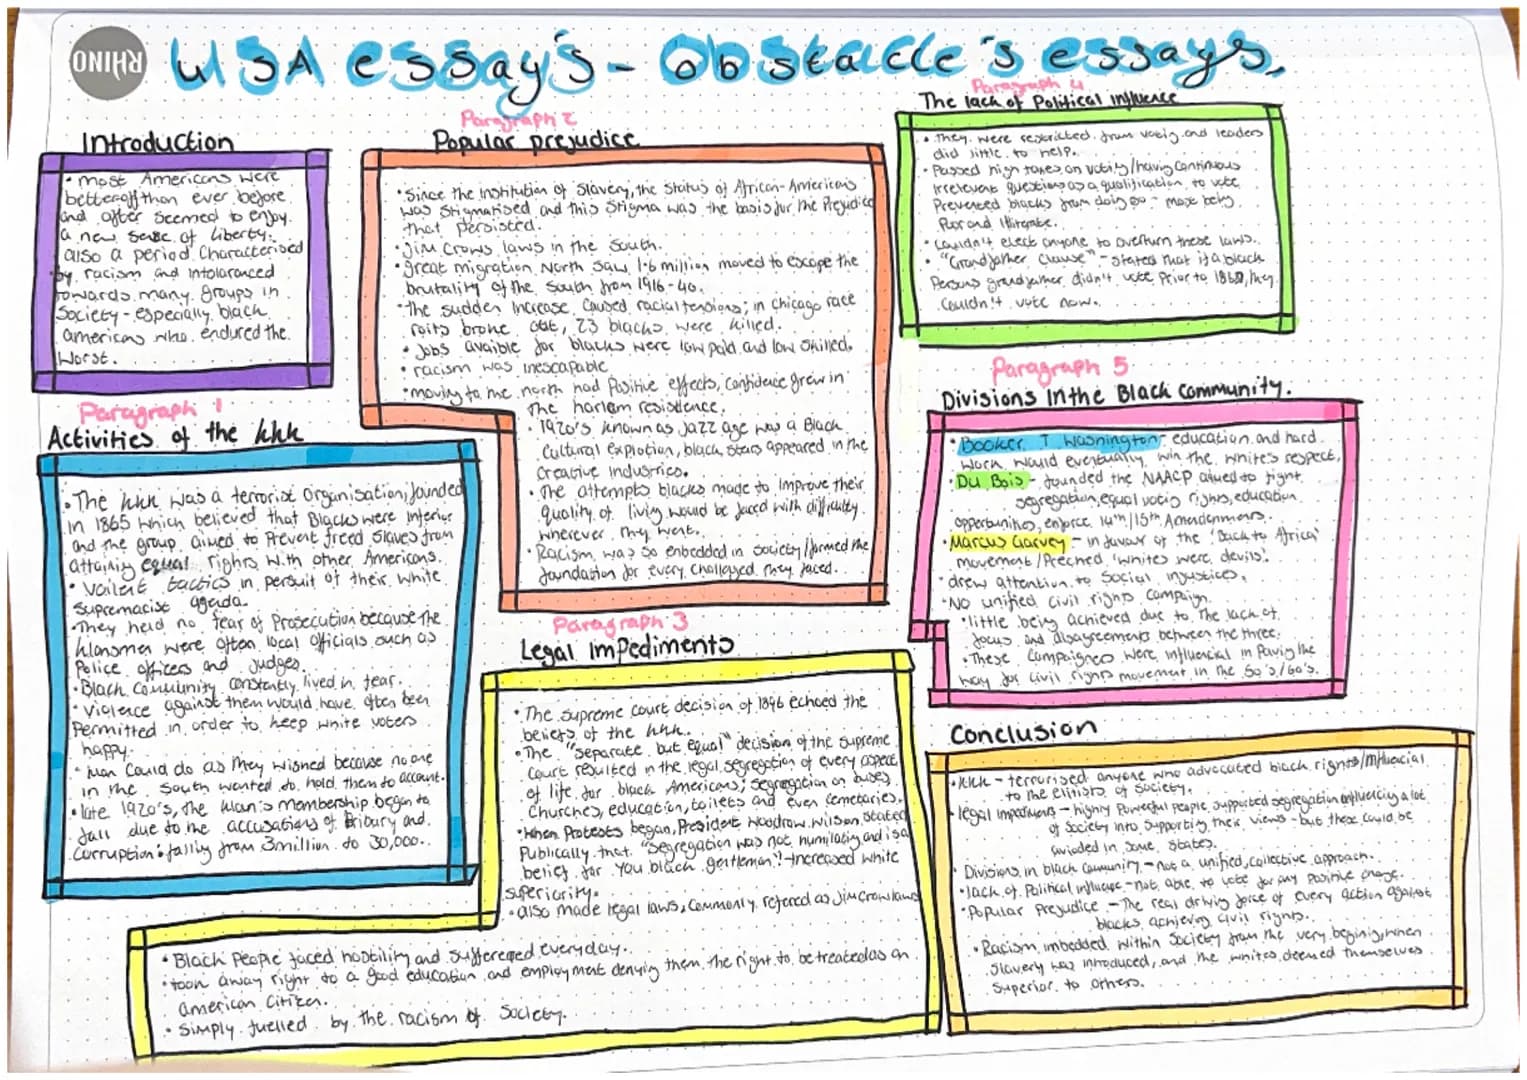 RHINO
USA essay's - Obstacle's essays.
Introduction
• most Americans were
better off than ever before
and after seemed to enjoy
a new sense of liberty.
also a period characterised
by racism and intoloranced
towards many groups in
Society - especially black
americans who endured the
worst.
Paragraph 1
Activities of the KKK
• The KKK was a terrorist Organisation, founded
in 1865 which believed that Blacks were inferior
and the group aimed to Prevent freed slaves from
attaining equal rights with other Americans.
• Voilent tactics in persuit of their white
Supremacist agenda.
• They held no fear of Prosecution because the
klansmen were often local officials such as
Police officers and Judges.
• Black Community constantly lived in fear.
• Violence against them would have often been
Permitted in order to keep white voters
happy.
• klan could do as they wished because no one
in the South wanted to hold them to account.
• late 1920's, the klan's membership began to
fall due to the accusations of Bribury and
Corruption: falling from 3million to 30,000.
Paragraph 2
Popular prejudice
• Since the institution of Slavery, the status of African-Americans
was Stigmatised and this Stigma was the basis for the Prejudice
that persisted.
• Jim Crows laws in the South.
• Great migration North saw 1.6 million moved to escape the
brutality of the South from 1916-40.
• The sudden increase caused racial tensions; in chicago race
roits broke out, 23 blacks were killed.
• Jobs avaible for blacks were low paid and low skilled.
• racism was inescapable
• moving to the north had Positive effects, Confidence grew in
the harlem resistence.
• 1920's known as Jazz age was a Black
Cultural explotion, black stars appeared in the
Creative industries.
• The attempts blacks made to improve their
quality of living would be faced with difficulty
wherever they went.
• Racism was so enbedded in society/formed the
foundation for every challenged they faced.
Paragraph 3
Legal impediments
• The supreme court decision of 1896 echoed the
beliefs of the KKK.
• The "separate but equal" decision of the supreme
Court resulted in the legal segregation of every aspect
of life for black Americans; segregation on buses
Churches, education, toilets and even cemetaries.
• When Protests began, President Woodrow Wilson stated
Publically that "segregation was not humilating and is a
belief for you black gentleman"! - increased white
superiority.
• also made legal laws, commonly refered as Jim Crow laws
• Black People faced hostility and sufferered everyday.
• took away right to a good education and employment denying them the right to be treated as an
american Citizen.
• Simply fuelled by the racism of Society.
Paragraph 4
The lack of Political influence
• They were restricted from voting and leaders
did little to help.
• Passed high taxes on voting/having continuous
irrelevent questions as a qualification to vote
Prevented blacks from doing so - most being
Poor and illiterate.
• Couldn't elect anyone to overturn these laws.
• "Grandfather Clause" - stated that if a black
Persons grandfather didn't vote prior to they
Couldn't vote now.
Paragraph 5
Divisions In the Black community.
• Booker T Washington - education and hard
work would eventually win the white's respect.
• Du Bois - founded the NAACP aimed to fight
segregation, equal votig rights, education
opportunities, enforce 14th/15th Amendenments.
• Marcus Garvey - in favour of the 'Back to Africa'
movement/Preched 'whites were devils'.
• drew attention to Social injustices.
• No unified civil rights campaign.
• little being achieved due to the lack of
focus and disagreements between the three.
• These campaigned were influencial in Paving the
way for civil rights movement in the 50's/60's.
Conclusion
• KKK - terrorised anyone who advocated black rights/influencial
to the elitists of society.
• legal impediments - highly Powerful people supported segregation influencing a lot
of society into supporting their views - but these could be
avioded in some states.
• Divisions in black community - not a unified, collective approach.
• lack of Political influence - not able to vote for any Positive change.
• Popular Prejudice - The real driving force of every action against
blacks achieving civil rights.
• Racism imbedded within Society from the very begining, when
slavery was introduced, and the whites deemed themselves
superior to others.